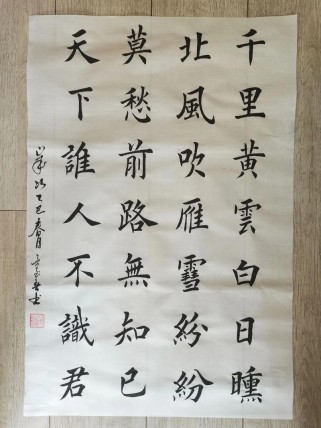 千里黄雲白日曛
北風吹雁雪紛紛
莫愁前路無知己
天下誰人不識君